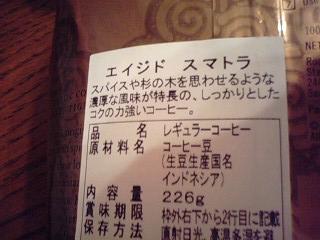 エイジド スマトラ
スパイスや杉の木を思わせるような
濃厚な風味が特長の、しっかりとした
コクの力強いコーヒー。
品名 レギュラーコーヒー
原材料名 コーヒー豆
(生豆生産国名
インドネシア)
内容量 226g
賞味期限 枠外右下から2行目に記載
保存方法 直射日光、高温多湿を避
100
NET